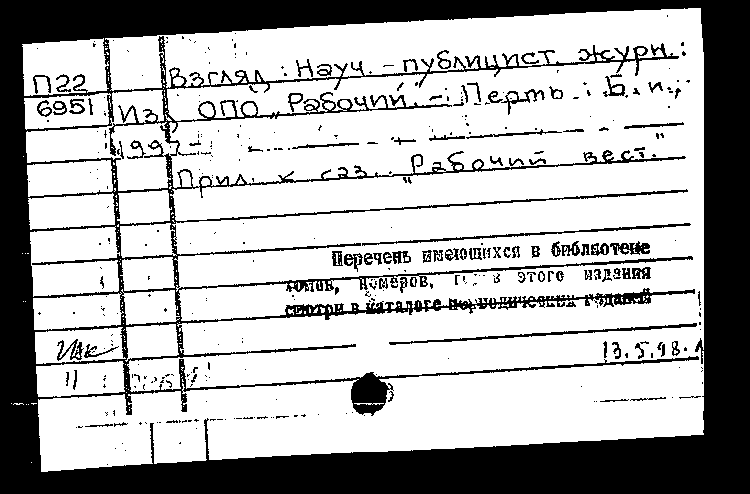 П22 Взгляд : Науч. - публицист. журн. :
6951 Изд ОПО „Рабочий“. - Пермь : Б. и.,
1997-
Прил. к газ. „Рабочий вест.“
Перечень имеющихся в библиотеке
томов, номеров, этого издания
смотри в каталоге периодических изданий
13.5.98.
11